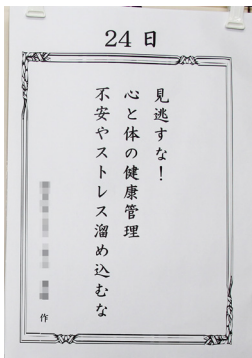 24日
見逃すな！
心と体の健康管理
不安やストレス溜め込むな
作